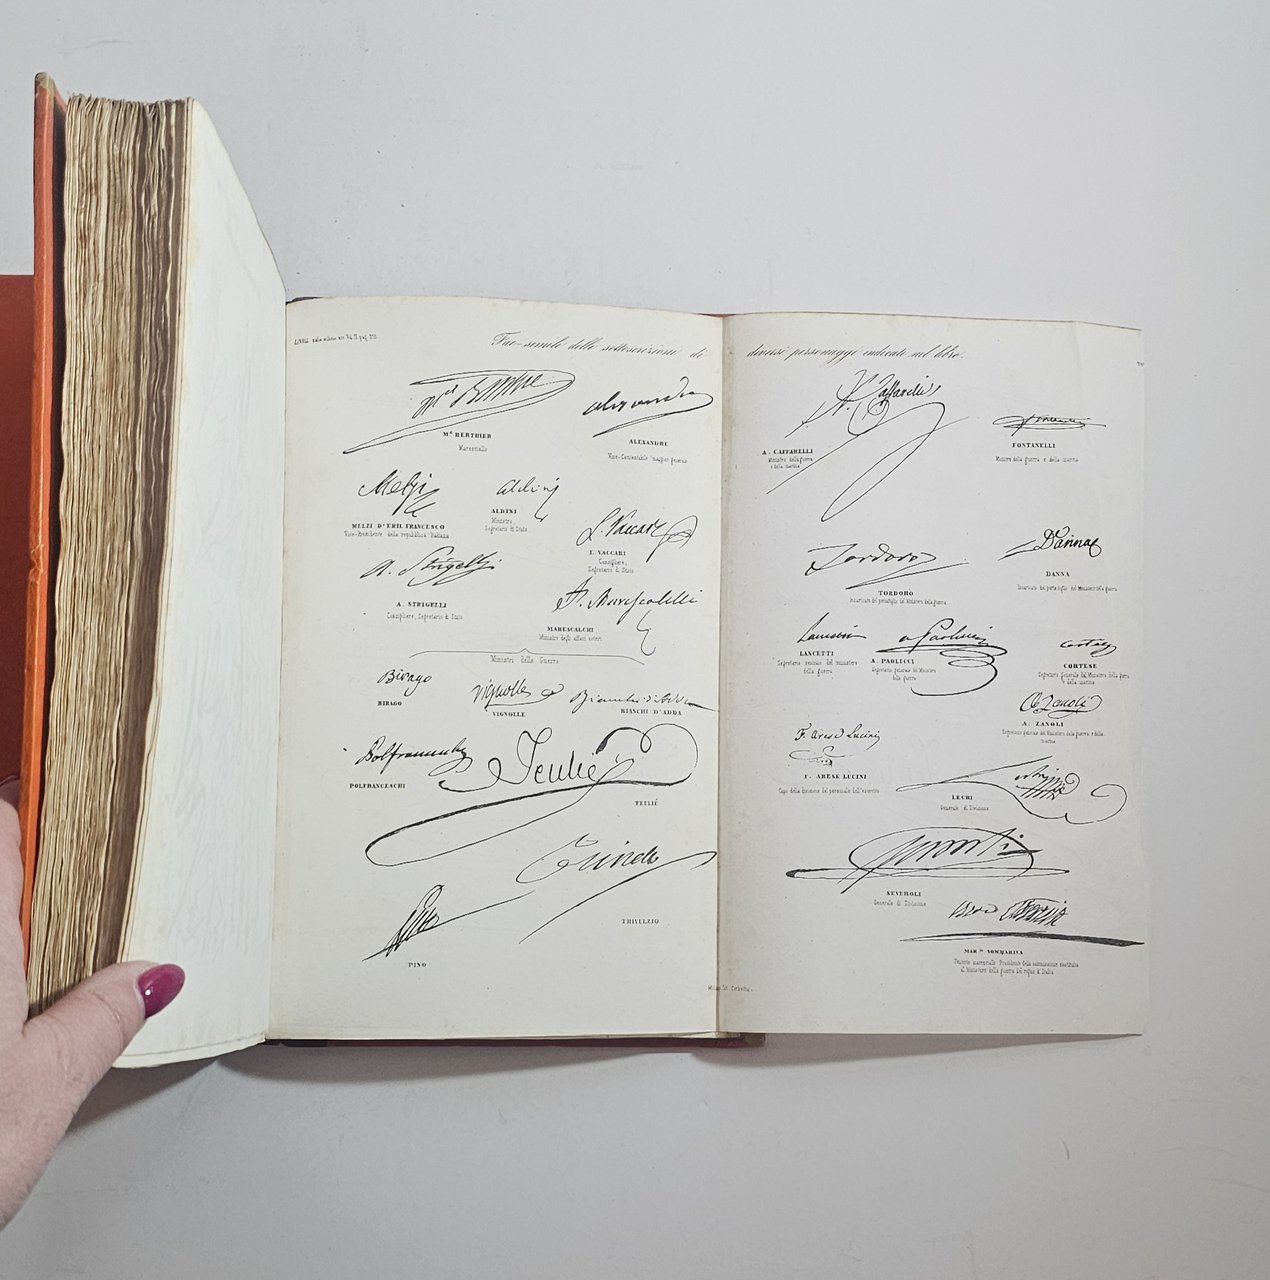 Fac-simile delle sottoscrizioni di diversi personaggi indicati nel libro.
M.al BERTHIER
Maresciallo
ALEXANDRE
Melzi
MELZI D'ERIL FRANCESCO
Vice-Presidente della repubblica Italiana
Aldini
ALDINI
Ministro,
Segretario di Stato
L. Vaccari
L. VACCARI
Consigliere,
Segretario di Stato
A. Strigelli
A. STRIGELLI
Consigliere, Segretario di Stato
MARESCALCHI
Ministro degli affari esteri
Ministri della Guerra
Birago
BIRAGO
Vignolle
VIGNOLLE
BIANCHI D'ADDA
POLFRANCESCHI
Teulié
TEULIÉ
TRIVULZIO
PINO
A. Caffarelli
A. CAFFARELLI
Ministro della guerra
e della marina
FONTANELLI
Ministro della guerra e della marina
Tordoro
TORDORO
Incaricato del portafoglio del Ministero della guerra
Danna
DANNA
Incaricato del portafoglio del Ministero della guerra
LANCETTI
Segretario centrale del ministero
della guerra
A. PAOLUCCI
Segretario generale del Ministero
della guerra
Cortese
CORTESE
Segretario generale del Ministero della guerra
e della marina
A. Zanoli
A. ZANOLI
Segretario generale del Ministero della guerra e della
marina
F. Arese Lucini
F. ARESE LUCINI
Capo della divisione del personale dell'esercito
LECHI
Generale di Divisione
SEVEROLI
Generale di Divisione
MAR.se SOMMARIVA
Tenente maresciallo Presidente della commissione sostituita
al Ministero della guerra del regno d'Italia
Milano Lit. Corbetta